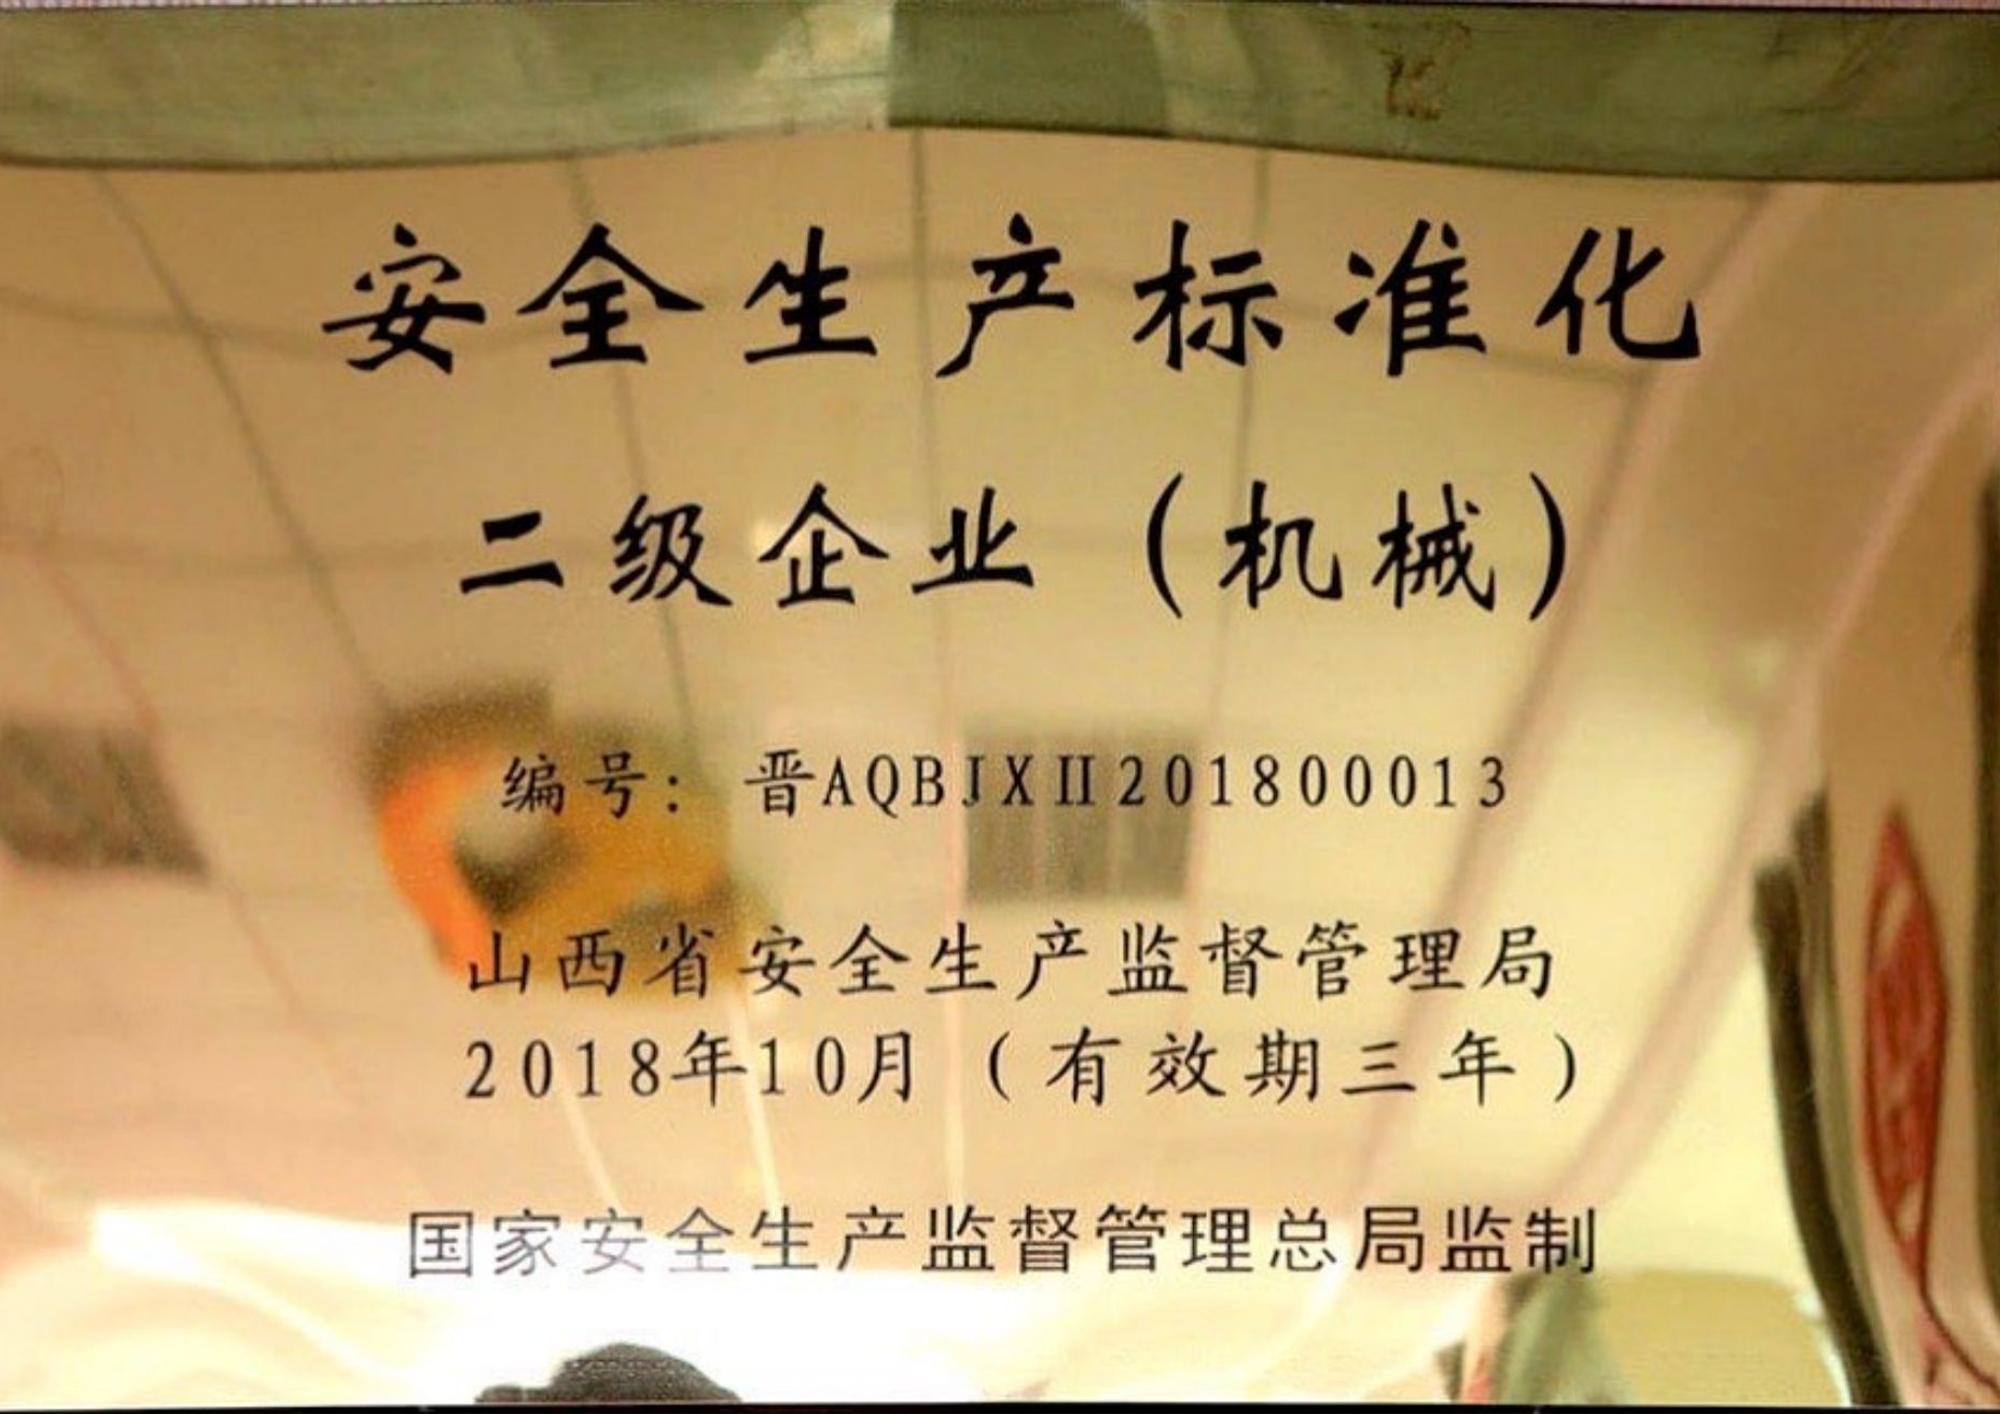 安全生产标准化
二级企业（机械）
编号：晋AQBJXⅡ201800013
山西省安全生产监督管理局
2018年10月（有效期三年）
国家安全生产监督管理总局监制